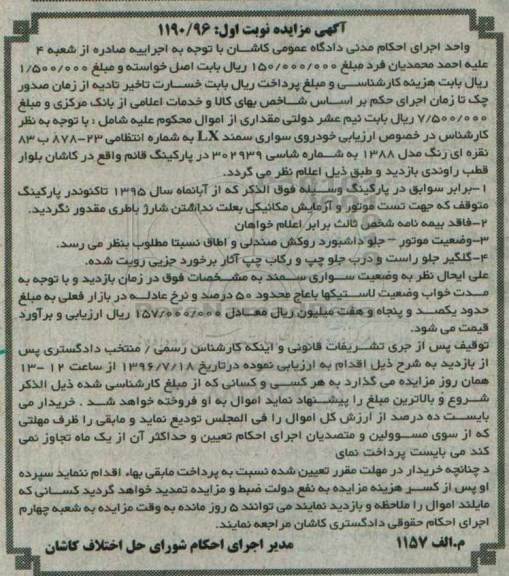 آگهی مزایده نوبت اول: ۱۱۹۰/۹۶
واحد اجرای احکام مدنی دادگاه عمومی کاشان با توجه به اجراییه صادره از شعبه ۴
علیه احمد محمدیان فرد مبلغ ۱۵۰/۰۰۰/۰۰۰ ریال بابت اصل خواسته و مبلغ ۱/۵۰۰/۰۰۰
ریال بابت هزینه کارشناسی و مبلغ پرداخت ریال بابت خسارت تاخیر تادیه از زمان صدور
چک تا زمان اجرای حکم بر اساس شاخص بهای کالا و خدمات اعلامی از بانک مرکزی و مبلغ
۷/۵۰۰/۰۰۰ ریال بابت نیم عشر دولتی مقداری از اموال محکوم علیه شامل : با توجه به نظر
کارشناس در خصوص ارزیابی خودروی سواری سمند LX به شماره انتظامی ۲۳-۸۷۸ ب ۸۳
نقره ای رنگ مدل ۱۳۸۸ به شماره شاسی ۳۰۲۹۳۹ در پارکینگ قائم واقع در کاشان بلوار
قطب راوندی بازدید و طبق ذیل اعلام نظر می گردد.
۱-برابر سوابق در پارکینگ وسیله فوق الذکر که از آبانماه سال ۱۳۹۵ تاکنوندر پارکینگ
متوقف که جهت تست موتور و آزمایش مکانیکی بعلت نداشتن شارژ باطری مقدور نگردید.
۲-فاقد بیمه نامه شخص ثالث برابر اعلام خواهان
۳-وضعیت موتور – جلو داشبورد روکش صندلی و اطاق نسبتا مطلوب بنظر می رسد.
۴-گلگیر جلو راست و درب جلو چپ و رکاب چپ آثار برخورد جزیی رویت شده.
علی ایحال نظر به وضعیت سواری سمند به مشخصات فوق در زمان بازدید و با توجه به
مدت خواب وضعیت لاستیکها باعاج محدود ۵۰ درصد و نرخ عادله در بازار فعلی به مبلغ
حدود یکصد و پنجاه و هفت میلیون ریال معادل ۱۵۷/۰۰۰/۰۰۰ ریال ارزیابی و برآورد
قیمت می شود.
توقیف پس از جری تشریفات قانونی و اینکه کارشناس رسمی / منتخب دادگستری پس
از بازدید به شرح ذیل اقدام به ارزیابی نموده درتاریخ ۱۳۹۶/۷/۱۸ از ساعت ۱۲ -۱۳
همان روز مزایده می گذارد به هر کسی و کسانی که از مبلغ کارشناسی شده ذیل الذکر
شروع و بالاترین مبلغ را پیشنهاد نماید اموال به او فروخته خواهد شد . خریدار می
بایست ده درصد از ارزش کل اموال را فی المجلس تودیع نماید و مابقی را ظرف مهلتی
که از سوی مسوولین و متصدیان اجرای احکام تعیین و حداکثر آن از یک ماه تجاوز نمی
کند می بایست پرداخت نمای
د چنانچه خریدار در مهلت مقرر تعیین شده نسبت به پرداخت مابقی بهاء اقدام ننماید سپرده
او پس از کسر هزینه مزایده به نفع دولت ضبط و مزایده تمدید خواهد گردید کسانی که
مایلند اموال را ملاحظه و بازدید نمایند می توانند ۵ روز مانده به وقت مزایده به شعبه چهارم
اجرای احکام حقوقی دادگستری کاشان مراجعه نمایند.
م.الف ۱۱۵۷ مدیر اجرای احکام شورای حل اختلاف کاشان